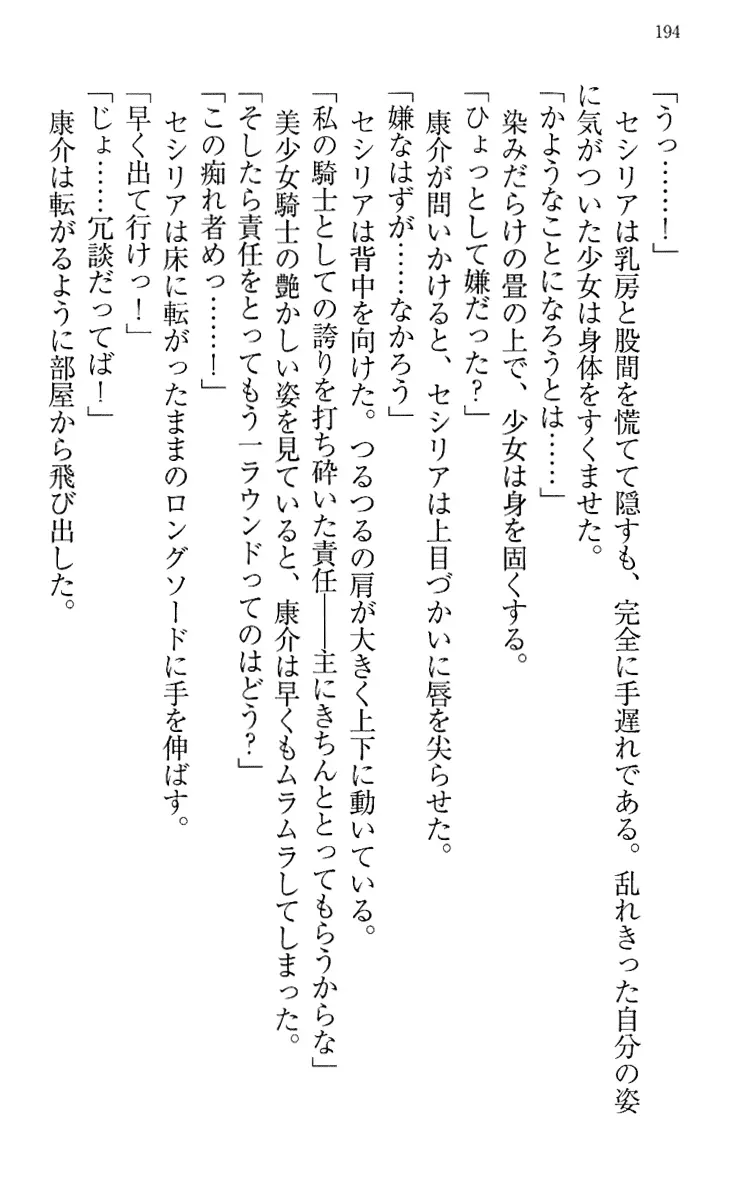 194
「うっ……！」
　セシリアは乳房と股間を慌てて隠すも、完全に手遅れである。乱れきった自分の姿
に気がついた少女は身体をすくませた。
「かようなことになろうとは……」
　染みだらけの畳の上で、少女は身を固くする。
「ひょっとして嫌だった？」
　康介が問いかけると、セシリアは上目づかいに唇を尖らせた。
「嫌なはずが……なかろう」
　セシリアは背中を向けた。つるつるの肩が大きく上下に動いている。
「私の騎士としての誇りを打ち砕いた責任――主にきちんととってもらうからな」
　美少女騎士の艶かしい姿を見ていると、康介は早くもムラムラしてしまった。
「そしたら責任をとってもう一ラウンドってのはどう？」
「この痴れ者めっ……！」
　セシリアは床に転がったままのロングソードに手を伸ばす。
「早く出て行けっ！」
「じょ……冗談だってば！」
　康介は転がるように部屋から飛び出した。